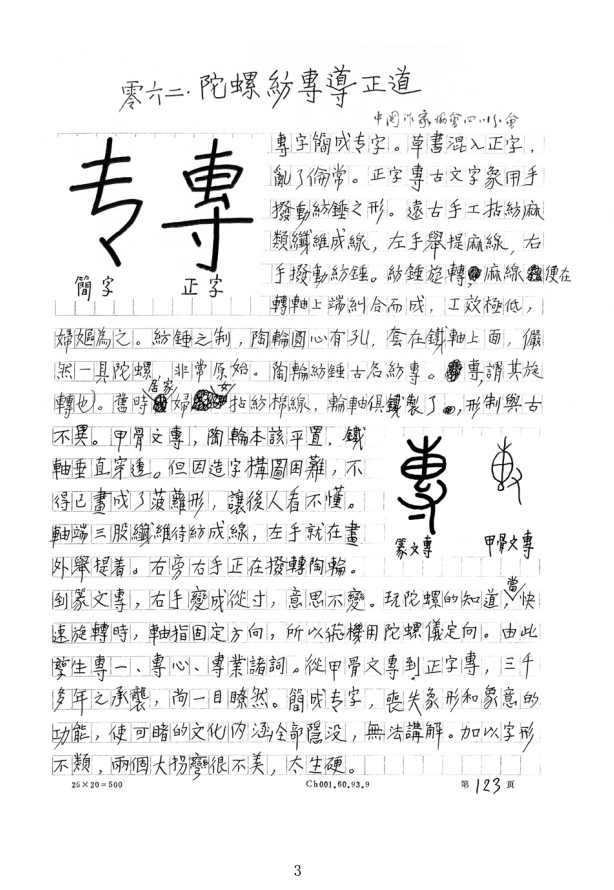 零六二.陀螺紡專導正道
中国作家協會四川分會
專字簡成专字。草書混入正字，
亂了倫常。正字專古文字象用手
撥動紡錘之形。遠古手工拈紡麻
類纖維成線，左手舉提麻線，右
手撥動紡錘。紡錘旋轉，麻線便在
轉軸上端糾合而成，工效極低，
专 專
簡字 正字
婦嫗為之。紡錘之制，陶輪圓心有孔，套在鐵軸上面，儼
然一具陀螺，非常原始。陶輪紡錘古名紡專。專，謂其旋
轉也）。舊時居家婦女拈紡棉線，輪軸俱鐵製了，形制與古
不異。甲骨文專，陶輪本該平置，鐵
軸垂直穿透。但因造字構圖困難，不
得已畫成了菠蘿形，讓後人看不懂。
軸端三股纖維待紡成線，左手就在畫
外舉提着。右旁右手正在撥轉陶輪。
篆文專 甲骨文專
到篆文專，右手變成從寸，意思不變。玩陀螺的知道，當快
速旋轉時，軸指固定方向，所以飛機用陀螺儀定向。由此
孳生專一、專心、專業諸詞。從甲骨文專到正字專，三千
多年之承襲，尚一目瞭然。簡成专字，喪失象形和象意的
功能，使可睹的文化內涵全部隱没，無法講解。加以字形
不類，兩個大拐彎很不美，太生硬。
25×20=500 Ch001.60.93.9 第123頁
3